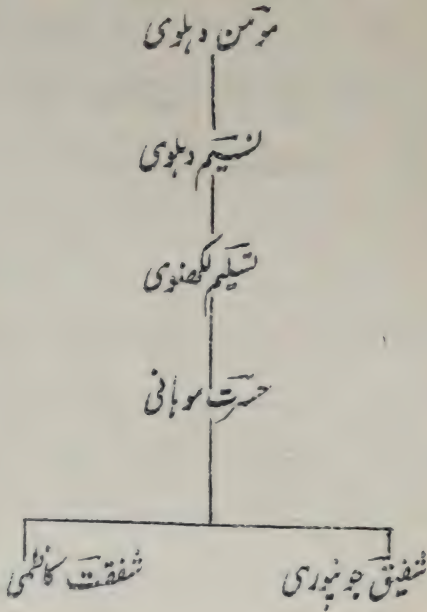 مومن دہلوی
نسیم دہلوی
تسلیم لکھنوی
حسرت موہانی
شفیق جونپوری
شفقت کاظمی